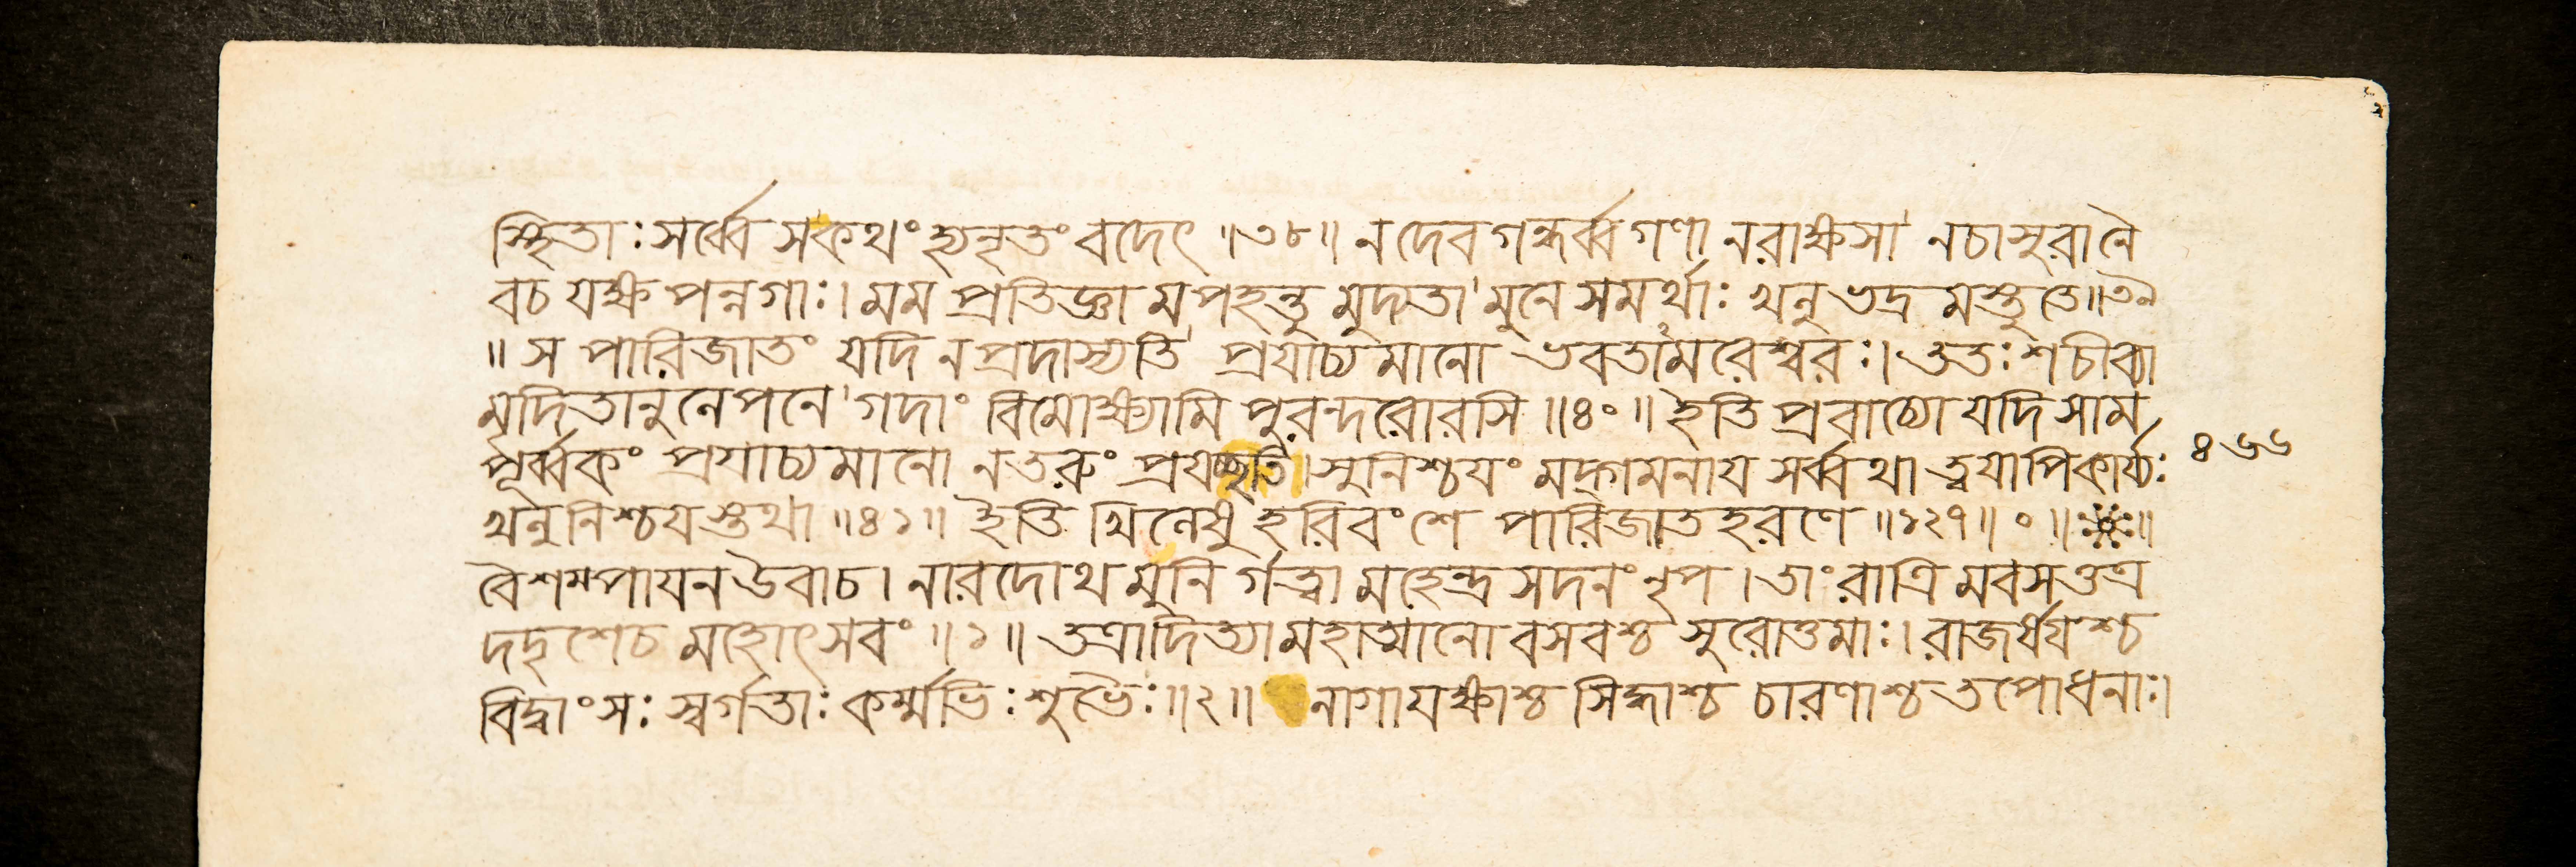 স্থিতাঃ সর্ব্বে স কথং হ্যনৃতং বদেৎ ॥৩৮॥ ন দেব গন্ধর্ব্ব গণা ন রাক্ষসা ন চাসুরা নৈ
ব চ যক্ষ পন্নগাঃ। মম প্রতিজ্ঞা মপহন্তু মুদ্যতা মুনে সমর্থাঃ খলু ভদ্র মস্তু তে॥৩৯
॥ স পারিজাতং যদি ন প্রদাস্যতি প্রযাচ্যমানো ভবতামরেশ্বরঃ। ততঃ শচীব্যা
মৃদিতানুলেপনে গদাং বিমোক্ষ্যামি পুরন্দরোরসি ॥৪০॥ ইতি প্রবাচ্যো যদি সাম
পূর্ব্বকং প্রযাচ্যমানো ন তরুং প্রযচ্ছতি। সুনিশ্চযং মদ্গমনায সর্ব্বথা ত্বযাপি কার্য্যঃ ৪৬৬
খলু নিশ্চয স্তথা ॥৪১॥ ইতি খিলেষু হরিবংশে পারিজাত হরণে ॥১২৭॥ ০ ॥ ॥
বৈশম্পাযন উবাচ। নারদোথ মুনি র্গত্বা মহেন্দ্র সদনং নৃপ। তাং রাত্রি মবসত্তত্র
দদৃশে চ মহোৎসবং ॥১॥ তত্রাদিত্যা মহাত্মানো বসবশ্চ সুরোত্তমাঃ। রাজর্ষযশ্চ
বিদ্বাংসঃ স্বর্গতাঃ কর্ম্মভিঃ শুভৈঃ ॥২॥ নাগা যক্ষাশ্চ সিদ্ধাশ্চ চারণাশ্চ তপোধনাঃ।